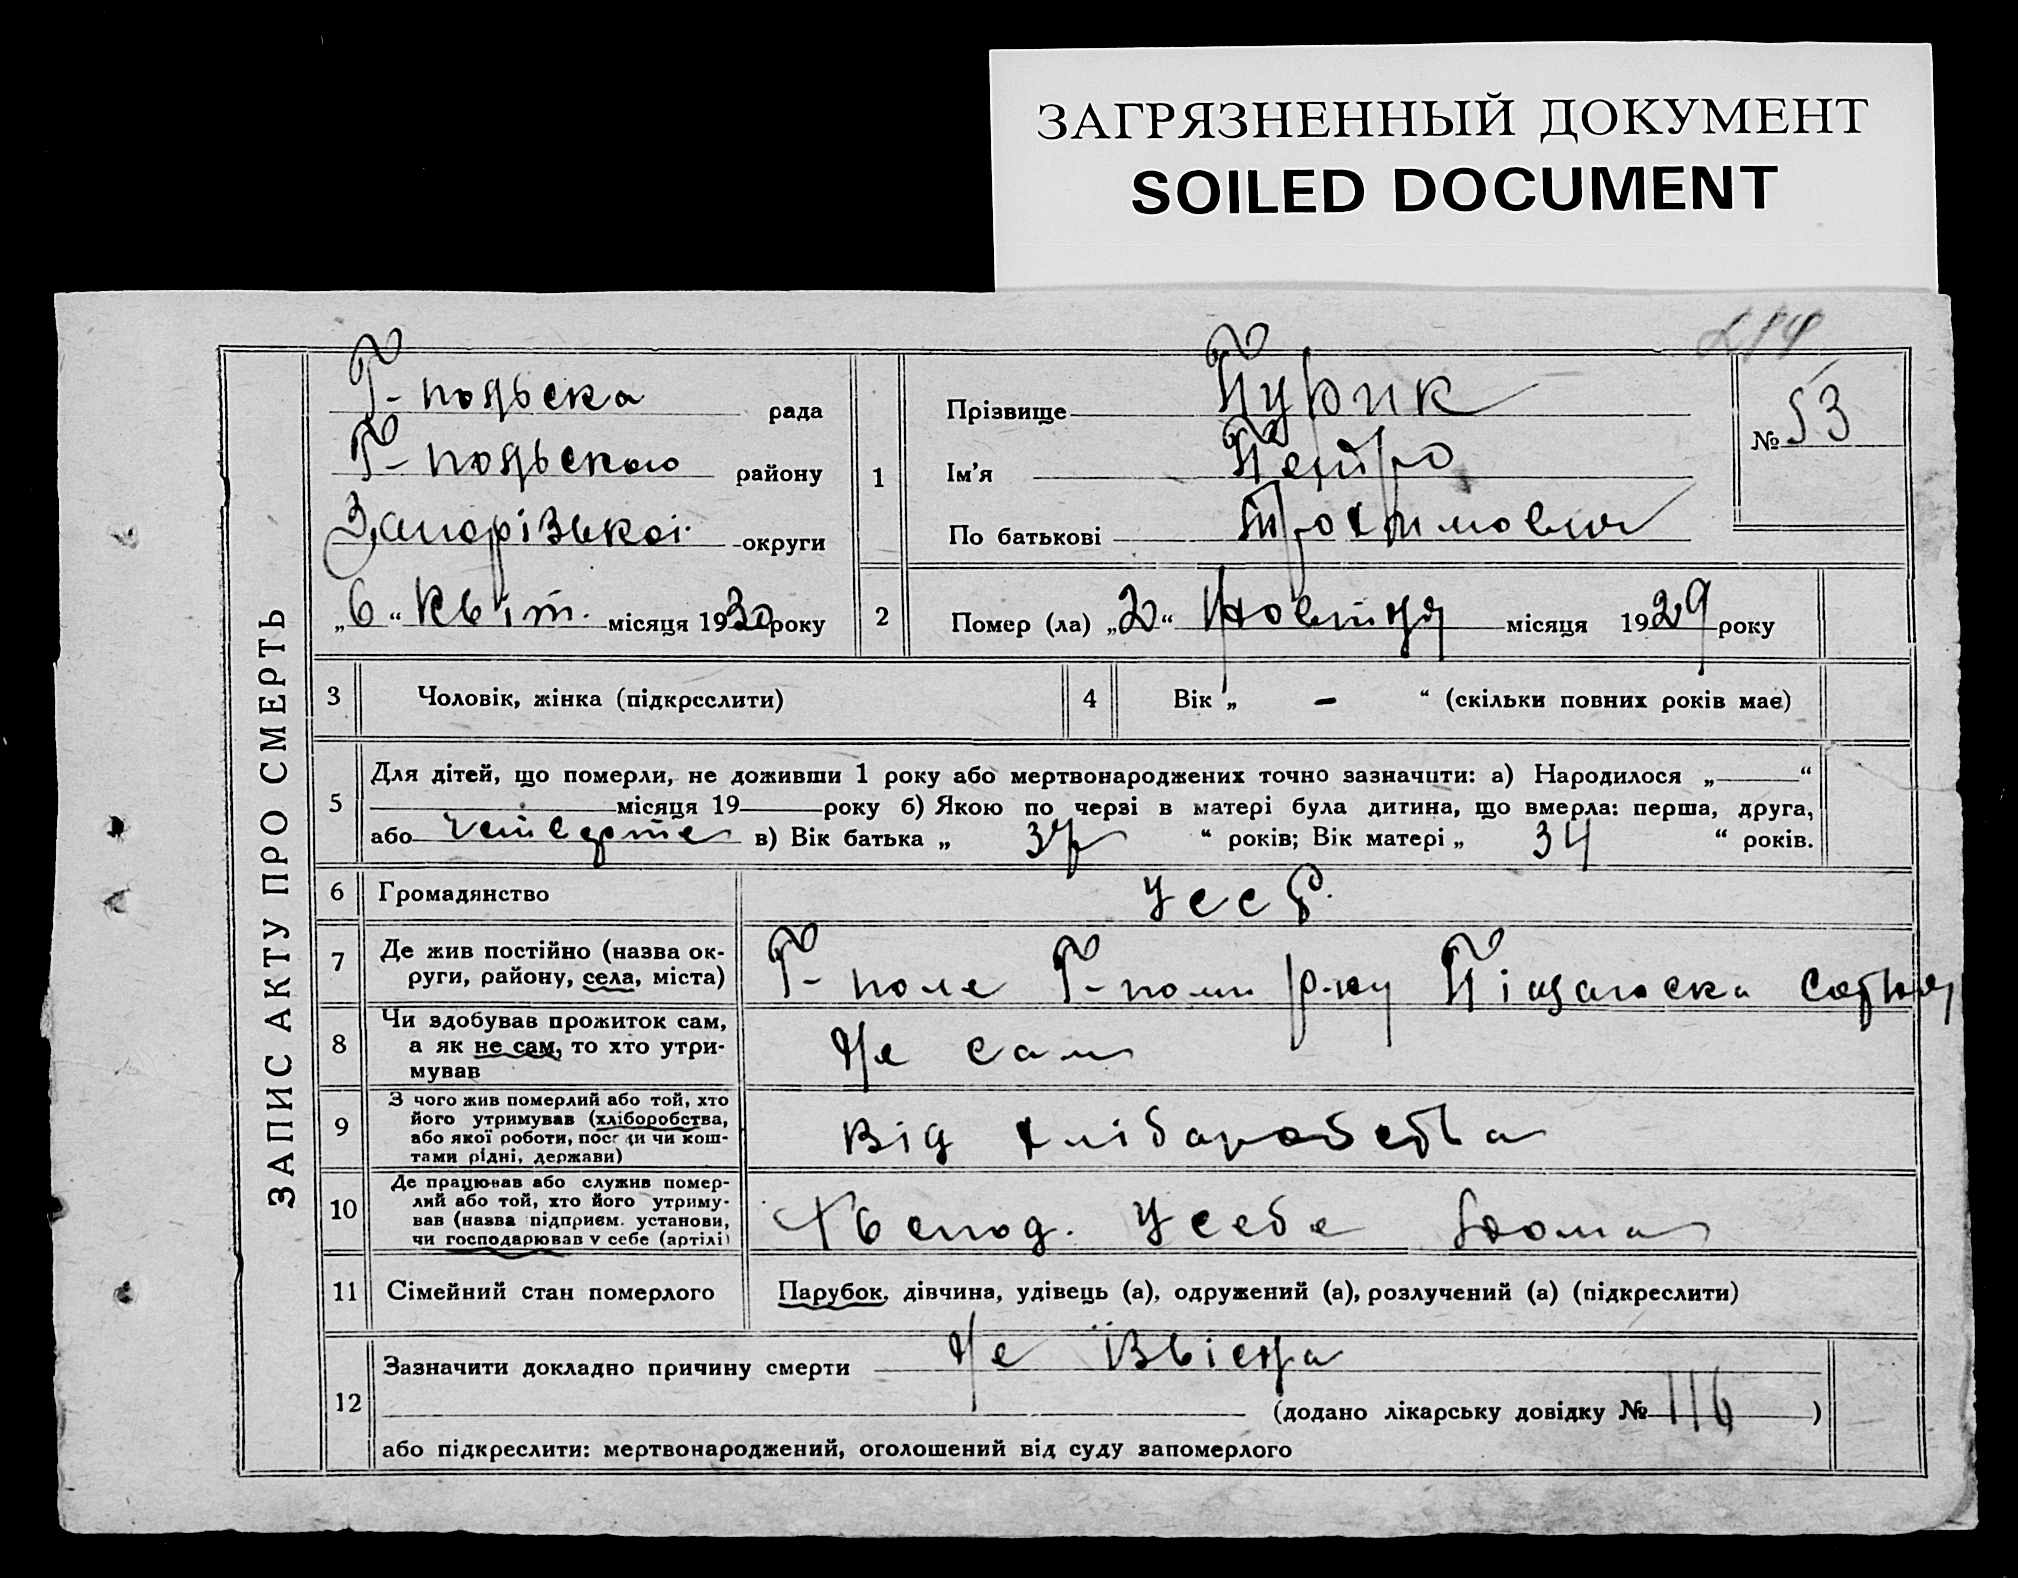 ЗАГРЯЗНЕННЫЙ ДОКУМЕНТ
SOILED DOCUMENT
ЗАПИС АКТУ ПРО СМЕРТЬ
Г-польска рада
Г-польського району
Запорізької округи
„6“ Квіт. місяця 1930 року
1
Прізвище Пурик
Ім'я Петро
По батькові Трохимович
№ 53
2 Помер (ла) „20“ Жовтня місяця 1929 року
3 Чоловік, жінка (підкреслити)
4 Вік „ - “ (скільки повних років має)
5 Для дітей, що померли, не доживши 1 року або мертвонароджених точно зазначити: а) Народилося „ “
місяця 19 року б) Якою по черзі в матері була дитина, що вмерла: перша, друга,
або в) Вік батька „ 37 “ років; Вік матері „ 34 “ років.
6 Громадянство УССР.
7 Де жив постійно (назва ок-
руги, району, села, міста)
Г-поле Г-поль р-ну Піщанська
8 Чи здобував прожиток сам,
а як не сам, то хто утри-
мував
Не сам
9 З чого жив померлий або той, хто
його утримував (хліборобства,
або якої роботи, посади чи кош-
тами рідні, держави)
від хліборобства
10 Де працював або служив помер-
лий або той, хто його утриму-
вав (назва підприєм. установи,
чи господарював у себе (артілі)
Усебе Дома
11 Сімейний стан померлого
Парубок, дівчина, удівець (а), одружений (а), розлучений (а) (підкреслити)
12 Зазначити докладно причину смерти Не
(додано лікарську довідку № 116 )
або підкреслити: мертвонароджений, оголошений від суду запомерлого